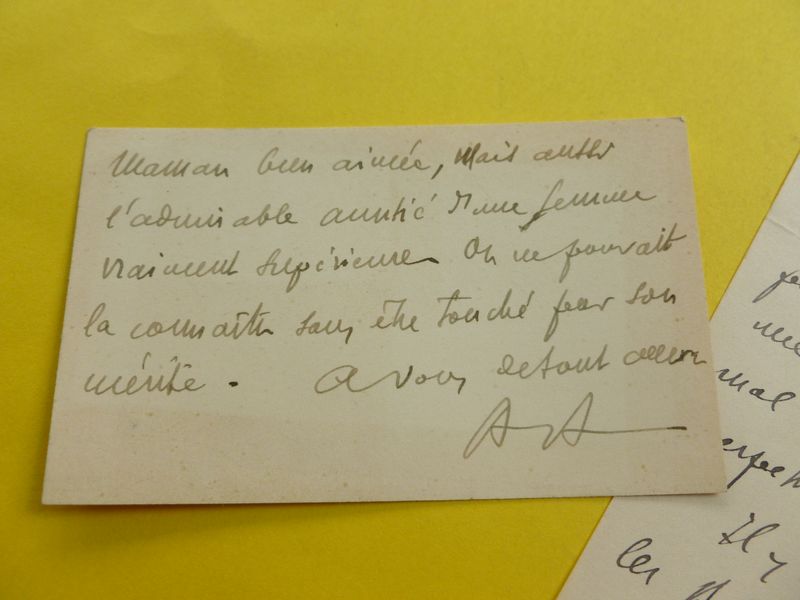 Maman bien aimée, Mais aussi
l'admirable amitié d'une femme
vraiment supérieure. On ne pouvait
la connaître sans être touché par son
mérite. A vous de tout coeur
mal
Il y
les